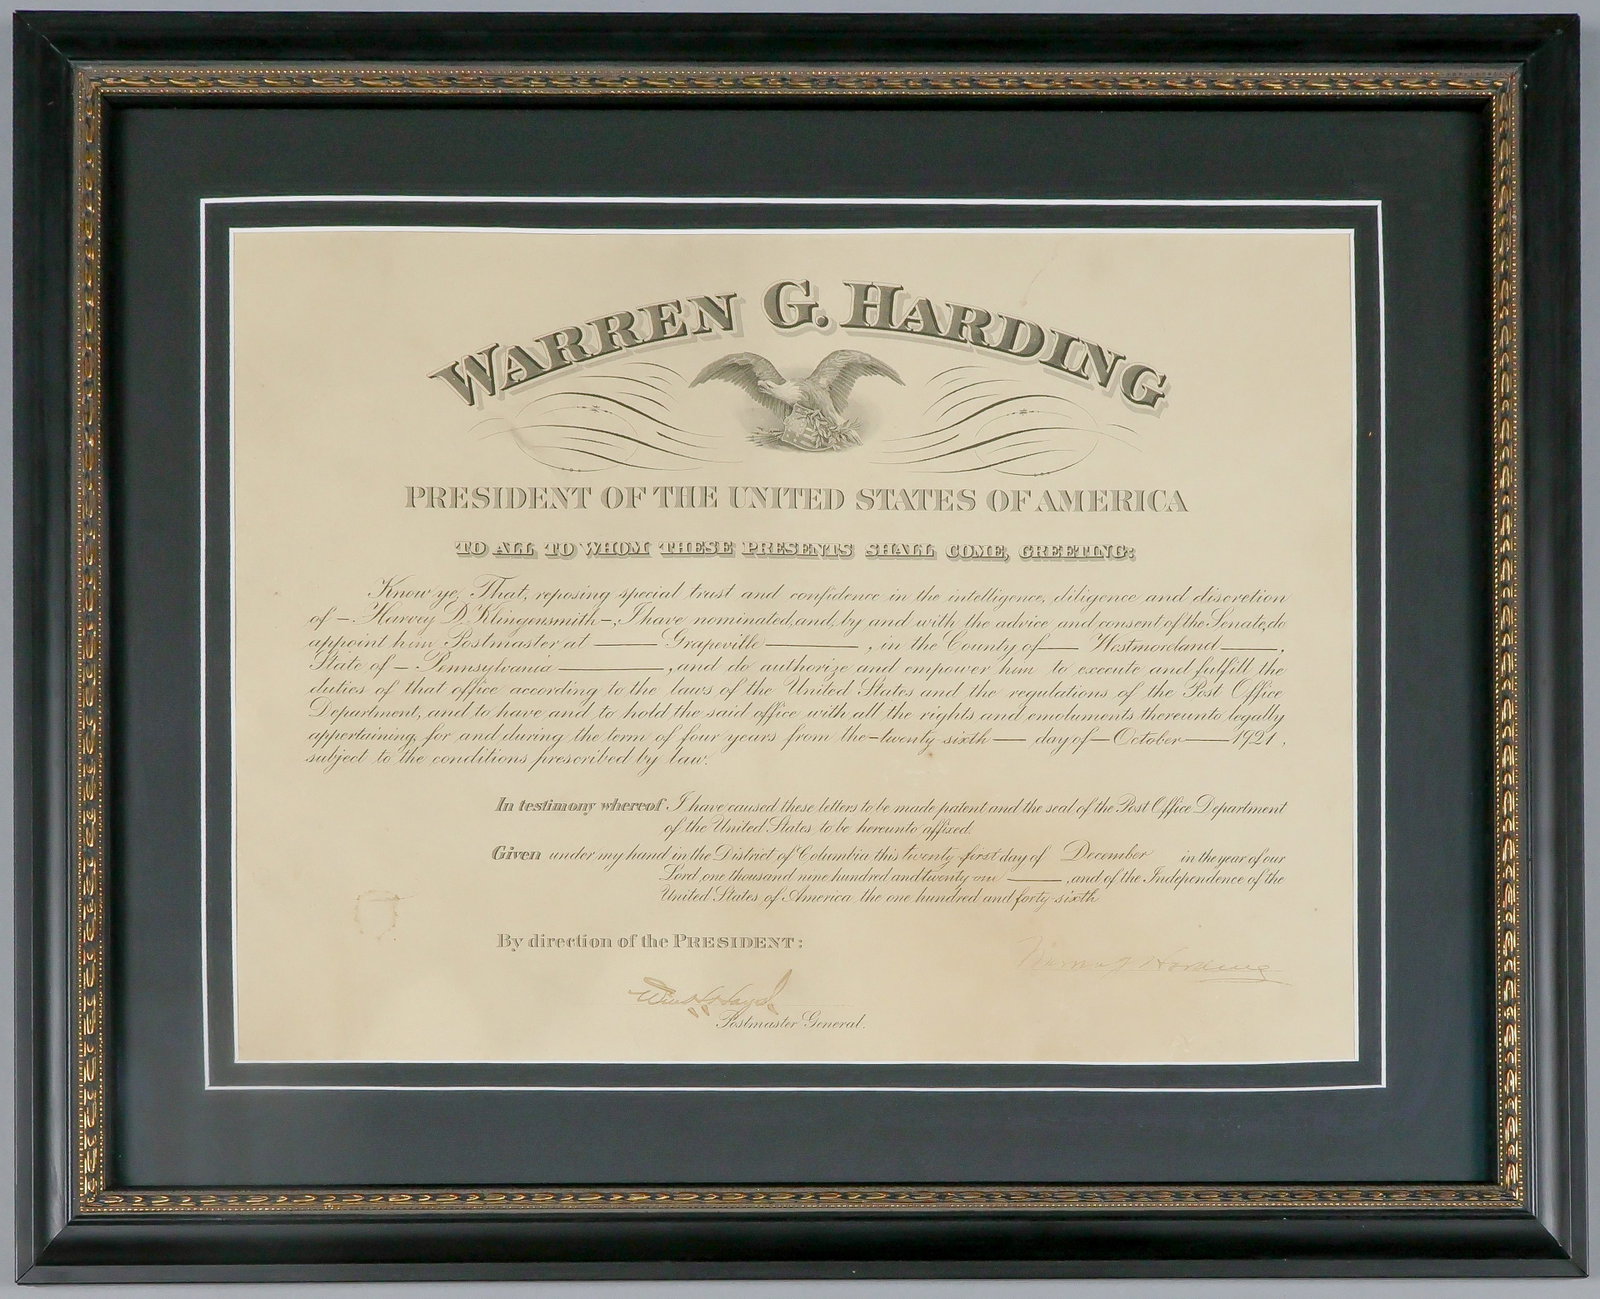 WARREN G. HARDING
PRESIDENT OF THE UNITED STATES OF AMERICA
TO ALL TO WHOM THESE PRESENTS SHALL COME, GREETING:
Know ye, That, reposing special trust and confidence in the intelligence, diligence and discretion
of — Harvey D. Klingensmith —, I have nominated, and, by and with the advice and consent of the Senate, do
appoint him Postmaster at — Grapeville —, in the County of — Westmoreland —,
State of — Pennsylvania —, and do authorize and empower him to execute and fulfill the
duties of that office according to the laws of the United States and the regulations of the Post Office
Department, and to have and to hold the said office with all the rights and emoluments thereunto legally
appertaining, for and during the term of four years from the — twenty sixth — day of — October — 1921,
subject to the conditions prescribed by law.
In testimony whereof I have caused these letters to be made patent and the seal of the Post Office Department
of the United States to be hereunto affixed.
Given under my hand in the District of Columbia this twenty first day of December in the year of our
Lord one thousand nine hundred and twenty one —, and of the Independence of the
United States of America, the one hundred and forty sixth
By direction of the PRESIDENT:
Warren G Harding
Will H Hays
Postmaster General.